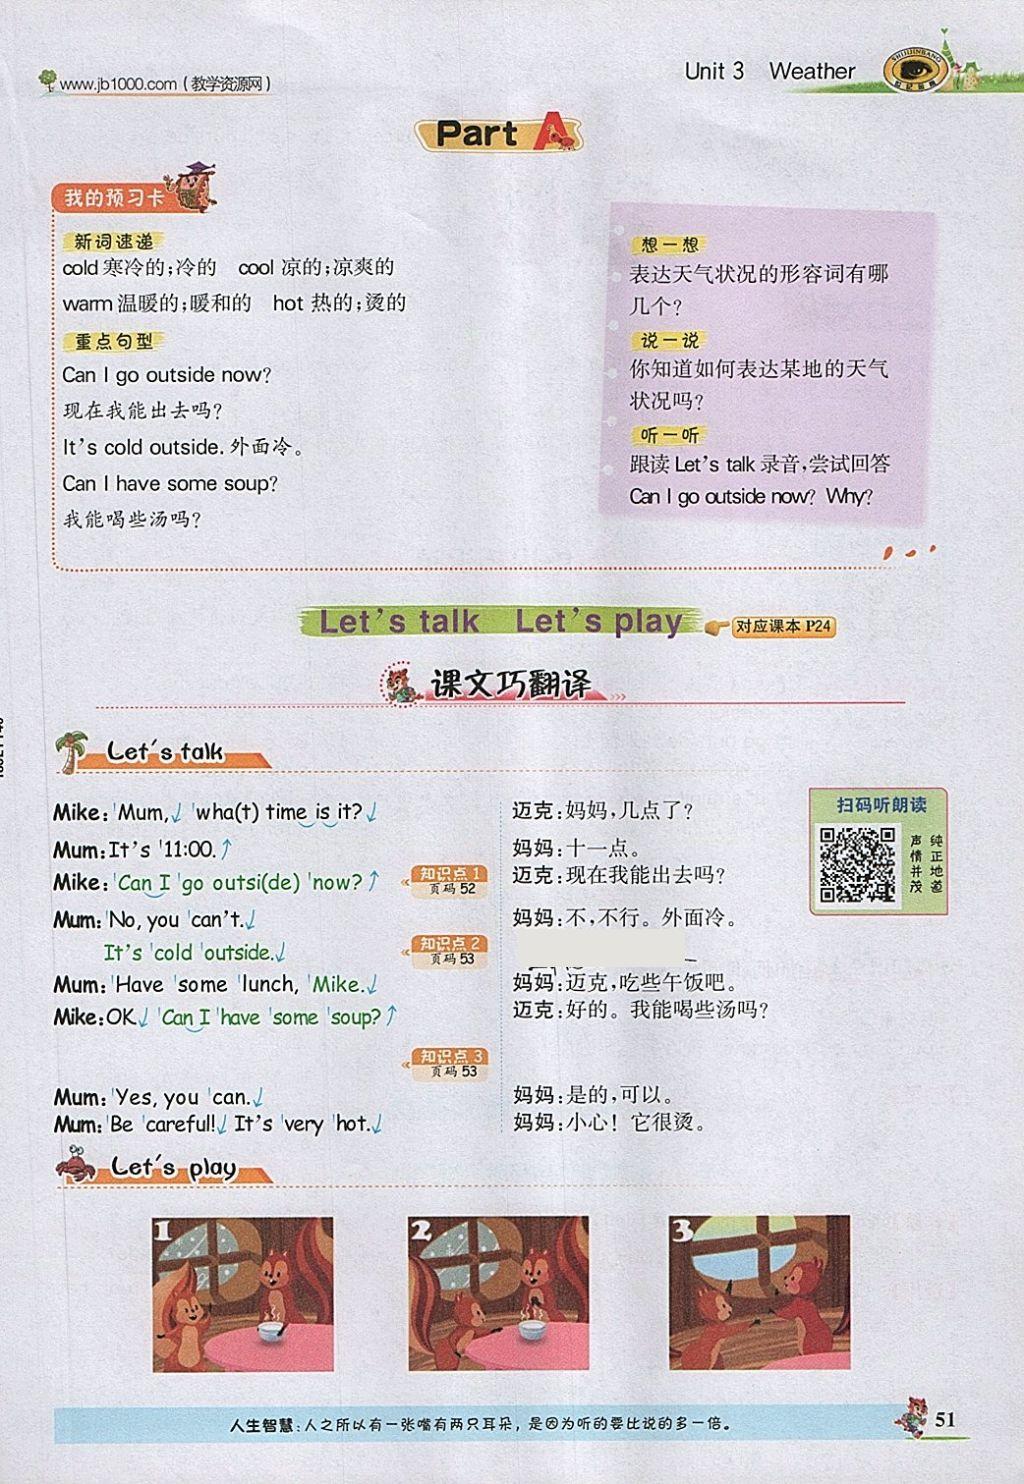 www.jb1000.com（教学资源网）
Unit 3 Weather
SHIJIJINBANG
Part A
我的预习卡
新词速递
cold 寒冷的;冷的 cool 凉的;凉爽的
warm 温暖的;暖和的 hot 热的;烫的
重点句型
Can I go outside now?
现在我能出去吗?
It's cold outside. 外面冷。
Can I have some soup?
我能喝些汤吗?
想一想
表达天气状况的形容词有哪
几个?
说一说
你知道如何表达某地的天气
状况吗?
听一听
跟读 Let's talk 录音,尝试回答
Can I go outside now? Why?
Let's talk Let's play
对应课本 P24
课文巧翻译
Let's talk
Mike: 'Mum,↓ 'wha(t) time is it?↓
Mum: It's '11:00.↑
Mike: 'Can I 'go outsi(de) 'now?↑
知识点 1
页码 52
Mum: 'No, you 'can't.↓
It's 'cold 'outside.↓
知识点 2
页码 53
Mum: 'Have 'some 'lunch, 'Mike.↓
Mike: OK.↓ 'Can I 'have 'some 'soup?↑
知识点 3
页码 53
Mum: 'Yes, you 'can.↓
Mum: 'Be 'careful!↓ It's 'very 'hot.↓
迈克:妈妈,几点了?
妈妈:十一点。
迈克:现在我能出去吗?
妈妈:不,不行。外面冷。
妈妈:迈克,吃些午饭吧。
迈克:好的。我能喝些汤吗?
妈妈:是的,可以。
妈妈:小心！它很烫。
扫码听朗读
纯正地道
声情并茂
Let's play
1
2
3
人生智慧:人之所以有一张嘴有两只耳朵，是因为听的要比说的多一倍。
51